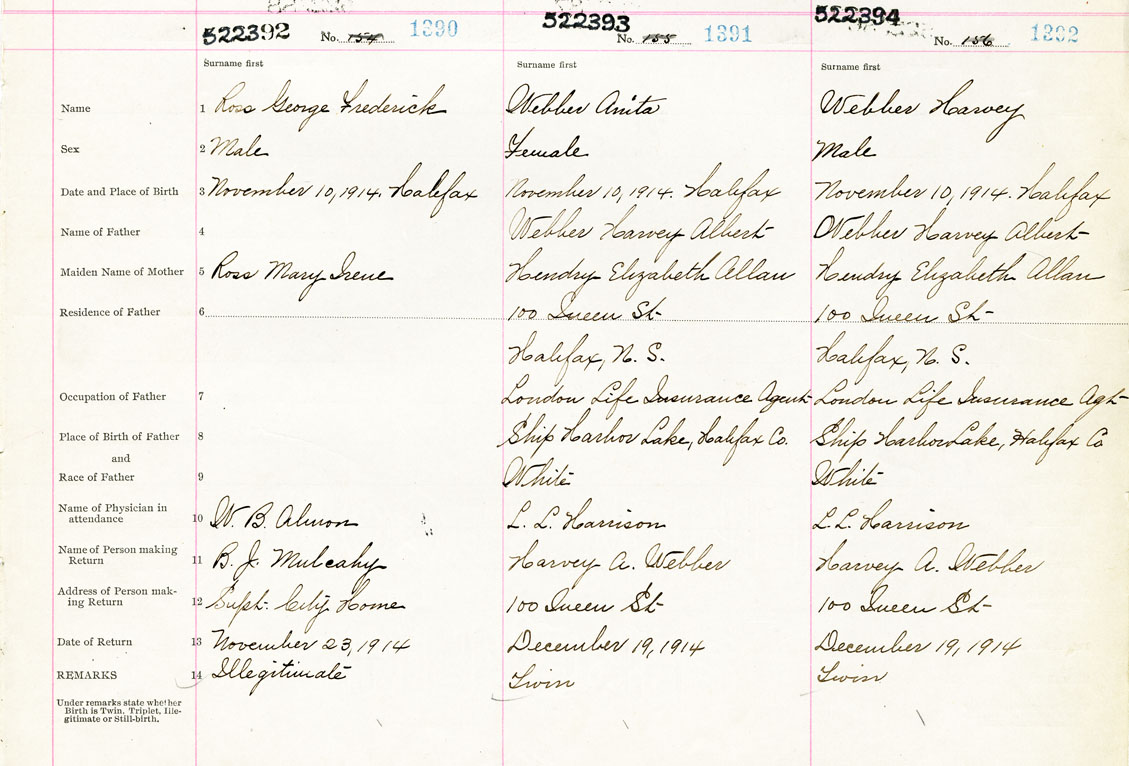 522392 No. 154 1390 522393 No. 155 1391 522394 No. 156 1392
Surname first Surname first Surname first
Name 1 Ross George Frederick Webber Anita Webber Harvey
Sex 2 Male Female Male
Date and Place of Birth 3 November 10, 1914. Halifax November 10, 1914. Halifax November 10, 1914. Halifax
Name of Father 4 Webber Harvey Albert Webber Harvey Albert
Maiden Name of Mother 5 Ross Mary Irene Hendry Elizabeth Allan Hendry Elizabeth Allan
Residence of Father 6 100 Queen St 100 Queen St
Halifax, N. S. Halifax, N. S.
Occupation of Father 7 London Life Insurance Agent London Life Insurance Agt
Place of Birth of Father 8 Ship Harbor Lake, Halifax Co. Ship Harbor Lake, Halifax Co
and
Race of Father 9 White White
Name of Physician in
attendance 10 W. B. Almon L. L. Harrison L. L. Harrison
Name of Person making
Return 11 B. J. Mulcahy Harvey A. Webber Harvey A. Webber
Address of Person mak-
ing Return 12 Supt. City Home 100 Queen St 100 Queen St
Date of Return 13 November 23, 1914 December 19, 1914 December 19, 1914
REMARKS 14 Illegitimate Twin Twin
Under remarks state whether
Birth is Twin, Triplet, Ille-
gitimate or Still-birth.